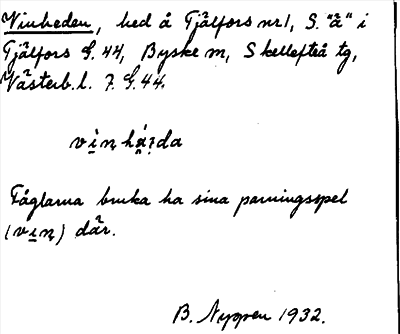 Vinheden, hed å Fjälfors nr 1, S. "å" i
Fjälfors S. 44, Byske m, Skellefteå tg,
Västerb. l. 7. S. 44.
Fåglarna bruka ha sina parningsspel
(vin) där.
B. Nyppen 1932.